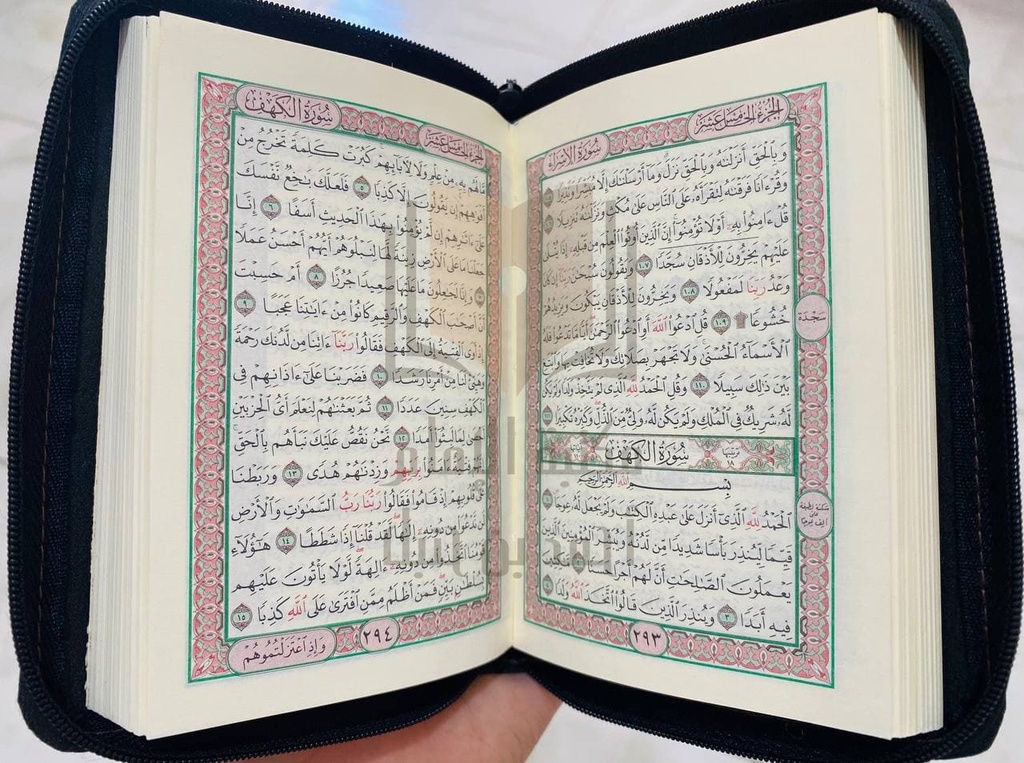 الجزء الخامس عشر
سورة الإسراء
وَبِالْحَقِّ أَنزَلْنَاهُ وَبِالْحَقِّ نَزَلَ وَمَا أَرْسَلْنَاكَ إِلَّا مُبَشِّرًا وَنَذِيرًا ١٠٥
وَقُرْءَانًا فَرَقْنَاهُ لِتَقْرَأَهُ عَلَى النَّاسِ عَلَى مُكْثٍ وَنَزَّلْنَاهُ تَنزِيلًا ١٠٦
قُلْ ءَامِنُوا بِهِ أَوْ لَا تُؤْمِنُوا إِنَّ الَّذِينَ أُوتُوا الْعِلْمَ مِن قَبْلِهِ إِذَا يُتْلَى
عَلَيْهِمْ يَخِرُّونَ لِلْأَذْقَانِ سُجَّدًا ١٠٧ وَيَقُولُونَ سُبْحَانَ رَبِّنَا إِن كَانَ
وَعْدُ رَبِّنَا لَمَفْعُولًا ١٠٨ وَيَخِرُّونَ لِلْأَذْقَانِ يَبْكُونَ وَيَزِيدُهُمْ
خُشُوعًا ۩ ١٠٩ قُلِ ادْعُوا اللَّهَ أَوِ ادْعُوا الرَّحْمَٰنَ أَيًّا مَّا تَدْعُوا فَلَهُ
الْأَسْمَاءُ الْحُسْنَى وَلَا تَجْهَرْ بِصَلَاتِكَ وَلَا تُخَافِتْ بِهَا وَابْتَغِ
بَيْنَ ذَلِكَ سَبِيلًا ١١٠ وَقُلِ الْحَمْدُ لِلَّهِ الَّذِي لَمْ يَتَّخِذْ وَلَدًا وَلَمْ يَكُن
لَّهُ شَرِيكٌ فِي الْمُلْكِ وَلَمْ يَكُن لَّهُ وَلِيٌّ مِّنَ الذُّلِّ وَكَبِّرْهُ تَكْبِيرًا ١١١
سجدة
ترتيبها ١٨
سورة الكهف
بِسْمِ اللَّهِ الرَّحْمَٰنِ الرَّحِيمِ
الْحَمْدُ لِلَّهِ الَّذِي أَنزَلَ عَلَى عَبْدِهِ الْكِتَابَ وَلَمْ يَجْعَل لَّهُ عِوَجًا ١
قَيِّمًا لِّيُنذِرَ بَأْسًا شَدِيدًا مِّن لَّدُنْهُ وَيُبَشِّرَ الْمُؤْمِنِينَ الَّذِينَ
يَعْمَلُونَ الصَّالِحَاتِ أَنَّ لَهُمْ أَجْرًا حَسَنًا ٢ مَّاكِثِينَ
فِيهِ أَبَدًا ٣ وَيُنذِرَ الَّذِينَ قَالُوا اتَّخَذَ اللَّهُ وَلَدًا ٤
٢٩٣
الجزء الخامس عشر
سورة الكهف
مَّا لَهُم بِهِ مِنْ عِلْمٍ وَلَا لِآبَائِهِمْ كَبُرَتْ كَلِمَةً تَخْرُجُ مِنْ
أَفْوَاهِهِمْ إِن يَقُولُونَ إِلَّا كَذِبًا ٥ فَلَعَلَّكَ بَاخِعٌ نَّفْسَكَ
عَلَى ءَاثَارِهِمْ إِن لَّمْ يُؤْمِنُوا بِهَذَا الْحَدِيثِ أَسَفًا ٦ إِنَّا
جَعَلْنَا مَا عَلَى الْأَرْضِ زِينَةً لَّهَا لِنَبْلُوَهُمْ أَيُّهُمْ أَحْسَنُ عَمَلًا
٧ وَإِنَّا لَجَاعِلُونَ مَا عَلَيْهَا صَعِيدًا جُرُزًا ٨ أَمْ حَسِبْتَ
أَنَّ أَصْحَابَ الْكَهْفِ وَالرَّقِيمِ كَانُوا مِنْ ءَايَاتِنَا عَجَبًا ٩
إِذْ أَوَى الْفِتْيَةُ إِلَى الْكَهْفِ فَقَالُوا رَبَّنَا ءَاتِنَا مِن لَّدُنكَ رَحْمَةً
وَهَيِّئْ لَنَا مِنْ أَمْرِنَا رَشَدًا ١٠ فَضَرَبْنَا عَلَى ءَاذَانِهِمْ فِي
الْكَهْفِ سِنِينَ عَدَدًا ١١ ثُمَّ بَعَثْنَاهُمْ لِنَعْلَمَ أَيُّ الْحِزْبَيْنِ
أَحْصَى لِمَا لَبِثُوا أَمَدًا ١٢ نَّحْنُ نَقُصُّ عَلَيْكَ نَبَأَهُم بِالْحَقِّ
إِنَّهُمْ فِتْيَةٌ ءَامَنُوا بِرَبِّهِمْ وَزِدْنَاهُمْ هُدًى ١٣ وَرَبَطْنَا
عَلَى قُلُوبِهِمْ إِذْ قَامُوا فَقَالُوا رَبُّنَا رَبُّ السَّمَاوَاتِ وَالْأَرْضِ
لَن نَّدْعُوَا مِن دُونِهِ إِلَهًا لَّقَدْ قُلْنَا إِذًا شَطَطًا ١٤ هَؤُلَاءِ
قَوْمُنَا اتَّخَذُوا مِن دُونِهِ ءَالِهَةً لَّوْلَا يَأْتُونَ عَلَيْهِم
بِسُلْطَانٍ بَيِّنٍ فَمَنْ أَظْلَمُ مِمَّنِ افْتَرَى عَلَى اللَّهِ كَذِبًا ١٥
وَإِذِ اعْتَزَلْتُمُوهُمْ
٢٩٤